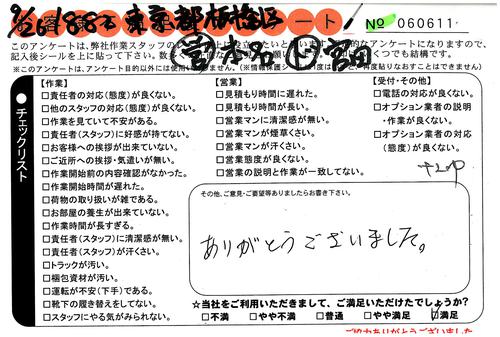 9/26 1885 東京都板橋区 ート
No 060611
このアンケートは、弊社作業スタッフの
記入後シールを上に貼って下さい。
※このアンケートは、アンケート目的以外には使用
チェックリスト
【作業】
□責任者の対応(態度)が良くない。
□他のスタッフの対応(態度)が良くない。
□作業を見ていて不安がある。
□責任者(スタッフ)に好感が持てない。
□お客様への挨拶が出来ていない。
□ご近所への挨拶・気遣いが無い。
□作業開始前の内容確認がなかった。
□作業開始時間が遅れた。
□荷物の取り扱いが雑である。
□お部屋の養生が出来ていない。
□作業時間が長すぎる。
□責任者(スタッフ)に清潔感が無い。
□責任者(スタッフ)が汗くさい。
□トラックが汚い。
□梱包資材が汚い。
□運転が不安(下手)である。
□靴下の履き替えをしてない。
□スタッフにやる気がみられない。
【営業】
□見積もり時間に遅れた。
□見積もり時間が長い。
□営業マンに清潔感が無い。
□営業マンが煙草くさい。
□営業マンが汗くさい。
□営業態度が良くない。
□営業の説明と作業が一致してない。
【受付・その他】
□電話の対応が良くない。
□オプション業者の説明
・作業が良くない。
□オプション業者の対応
(態度)が良くない。
その他、ご意見・ご要望等ありましたらお書き下さい。
ありがとうございました。
☆当社をご利用いただきまして、ご満足いただけたでしょうか?
□不満 □やや不満 □普通 □やや満足 □満足
ご協力ありがとうございました